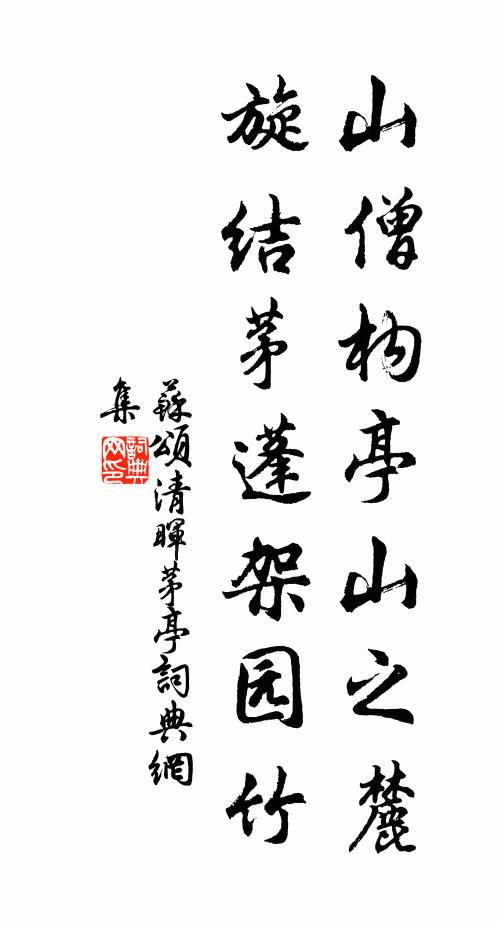 山僧构亭山之麓
旋结茅蓬架园竹
蘇頌清暉茅亭詞典網
集
詞典网印